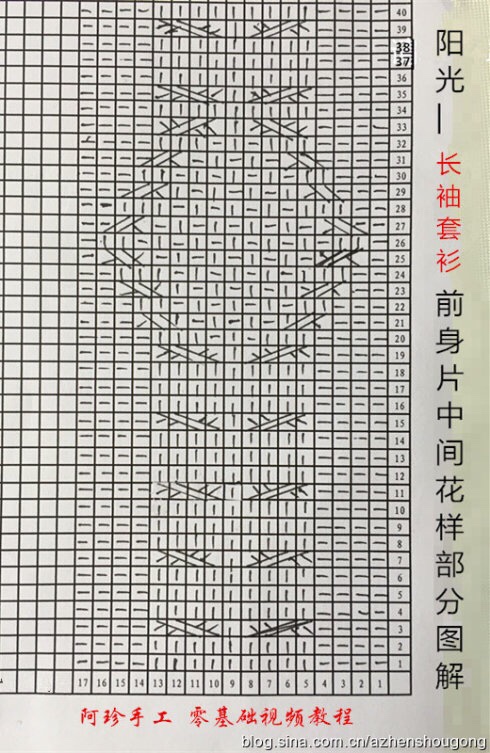 阳光—长袖套衫 前身片中间花样部分图解
40
39
38
37
36
35
34
33
32
31
30
29
28
27
26
25
24
23
22
21
20
19
18
17
16
15
14
13
12
11
10
9
8
7
6
5
4
3
2
1
17 16 15 14 13 12 11 10 9 8 7 6 5 4 3 2 1
阿珍手工 零基础视频教程
blog.sina.com.cn/azhenshougong